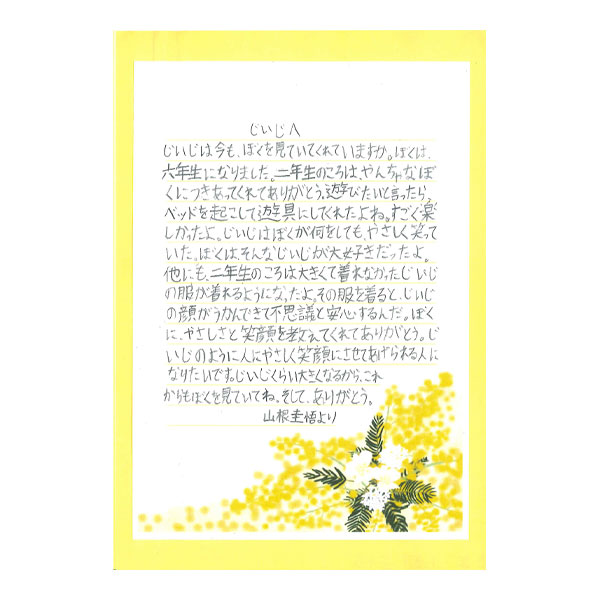 じいじへ
じいじは今も、ぼくを見ていてくれていますか。ぼくは、
六年生になりました。二年生のころは、やんちゃなぼ
くにつきあってくれてありがとう。遊びたいと言ったら、
ベッドを起こして遊具にしてくれたよね。すごく楽
しかったよ。じいじはぼくが何をしても、やさしく笑って
いた。ぼくはそんなじいじが大好きだったよ。
他にも、二年生のころは大きくて着れなかったじいじ
の服が着れるようになったよ。その服を着ると、じいじ
の顔がうかんできて不思議と安心するんだ。ぼく
に、やさしさと笑顔を教えてくれてありがとう。じ
いじのように人にやさしく笑顔にさせてあげられる人に
なりたいです。じいじくらい大きくなるから、これ
からもぼくを見ていてね。そして、ありがとう。
山根圭悟より